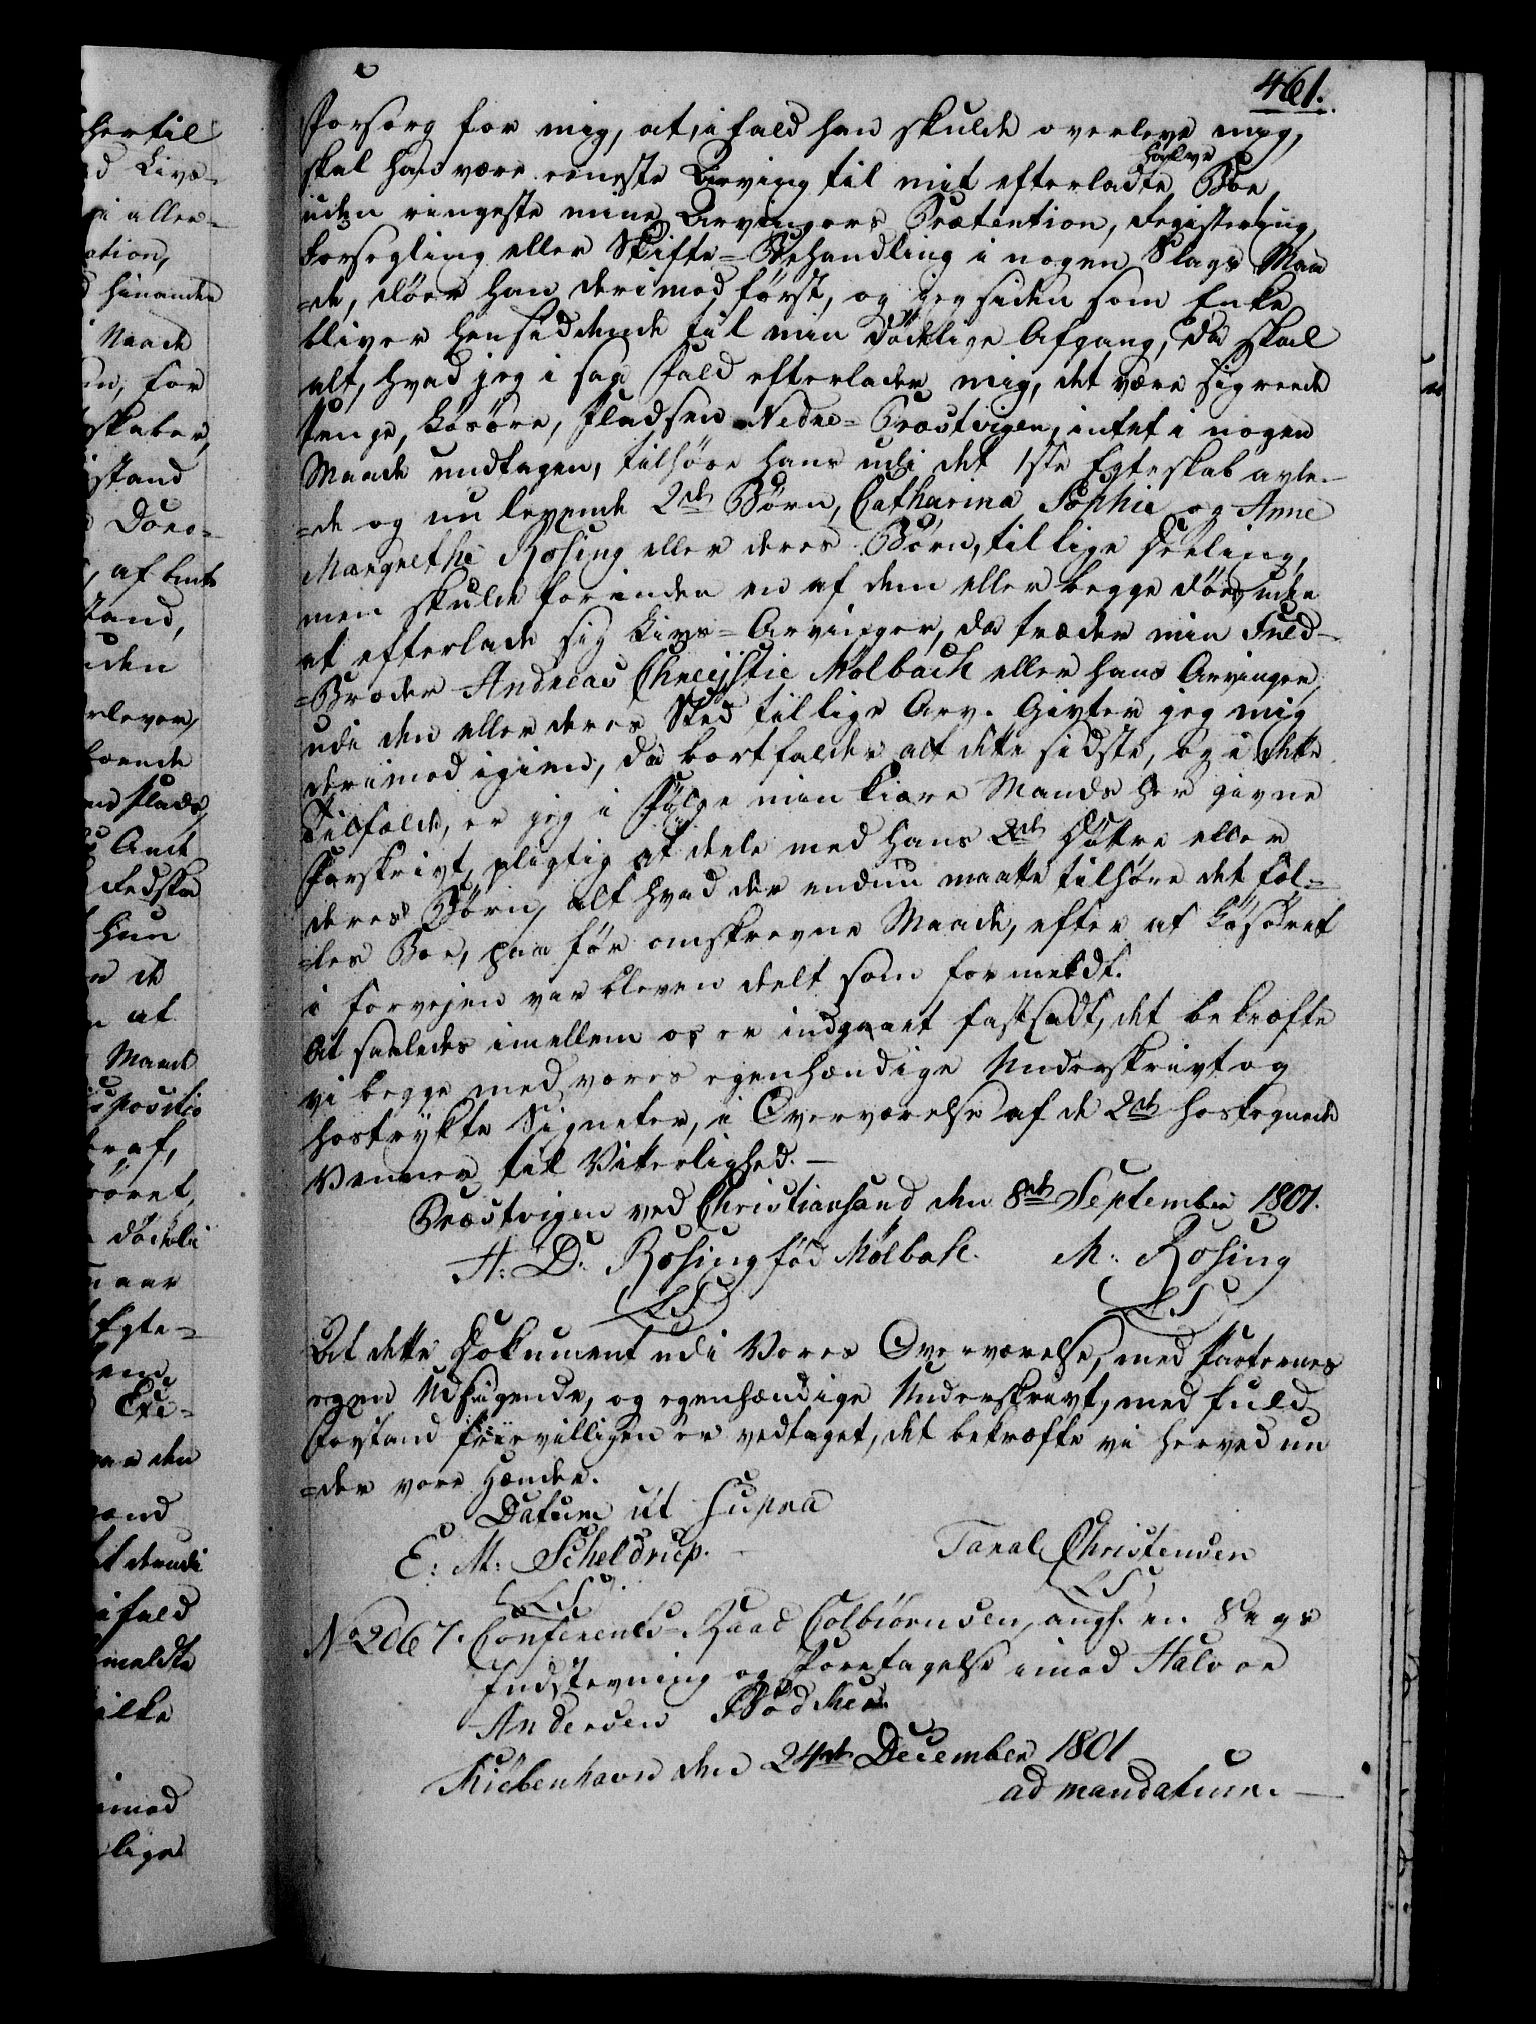 461.
Forsorg for mig, at, i fald han skulde overleve mig,
skal han være eeneste Arving til mit efterladte halve Boe,
uden ringeste mine Arvingers Prætention, Registering,
Forsegling eller Skifte-Behandling i nogen Slags Maa
=de, döer han derimod först, og jeg siden som Enke
bliver hensiddende til min dödelige Afgang, da skal
alt, hvad jeg i saa Fald efterlader mig, det være sig reede
Penge, Lösöre, Pladsen Nedre-Præstvigen, intet i nogen
Maade undtagen, tilhöre hans udi det 1ste Egteskab avle-
=de og nu levende 2de Börn, Catharina Sophie og Anne
Margrethe Rosing eller deres Börn, til lige Deeling,
men skulde forinden en af dem eller begge döe, uden
at efterlade sig Livs-Arvinger, da træder min Fuld-
=Broder Andreas Chrejstie Mölbach eller hans Arvinger,
udi den eller deres Sted til lige Arv. Givter jeg mig
derimod igien, da bortfalder alt dette sidste, og i dette
Tilfælde, er jeg i Fölge min kiære Mands her givne
Forskrivt, pligtig at deele med hans 2de Döttre eller
deres Börn, alt hvad der endnu maatte tilhöre det fæl-
=les Boe, paa för omskrevne Maade, efter at Lösöret
i Forvejen var bleven deelt som formeldt.
At saaledes imellem os er indgaaet fastsadt, det bekræfte
vi begge med vores egenhændige Underskrivt og
hostrykte Signeter, i Overværelse af de 2de hostegnede
Venner til Vitterlighed. —
Præstvigen ved Christiansand, den 8de September 1801.
A: D. Rosing föd Mölbak. M. Rosing
(LS) (LS)
At dette Dokument udi Vores Overværelse, med Parternes
egen Udsigende, og egenhændige Underskrivt, med fuld
Forstand frievilligen er vedtaget, det bekræfte vi herved un
=der vore Hænder.
Datum ut supra
E: M: Scheldrup. Taral Christensen
(LS) (LS)
No 2067. Conferents-Raad Colbiörnsen, angl. en Sags
Indstevning og Foretagelse imod Halvor
Andersen Bödker.
Kiöbenhavn den 24de December 1801
ad mandatum. —